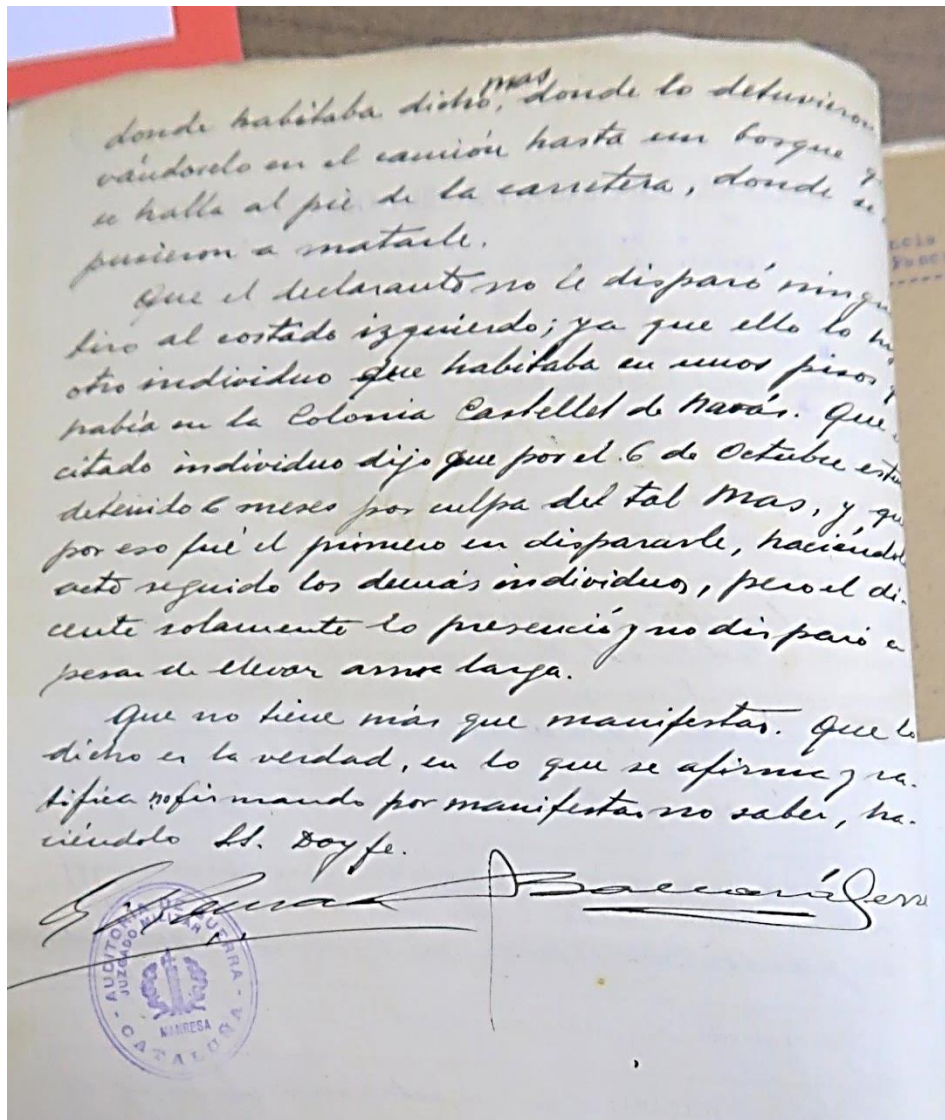 mas
donde habitaba dicho, donde lo detuvieron
vándoselo en el camión hasta un bosque
se halla al pié de la carretera, donde se
pusieron a matarle.
Que el declarante no le disparó ningu
tiro al costado izquierdo; ya que ello lo hi
otro individuo que habitaba en unos pisos
había en la Colonia Castellet de Navás. Que
citado individuo dijo que por el 6 de Octubre estu
detenido 6 meses por culpa del tal Mas, y, qu
por eso fué el primero en dispararle, haciéndol
acto seguido los demás individuos, pero el di-
cente solamente lo presenció y no disparó a
pesar de llevar arma larga.
Que no tiene más que manifestar. Que lo
dicho es la verdad, en lo que se afirma y ra-
tifica no firmando por manifestar no saber, ha-
ciéndolo SS. Doy fe.
AUDITORIA DE GUERRA - CATALUÑA -
JUZGADO MILITAR
MANRESA